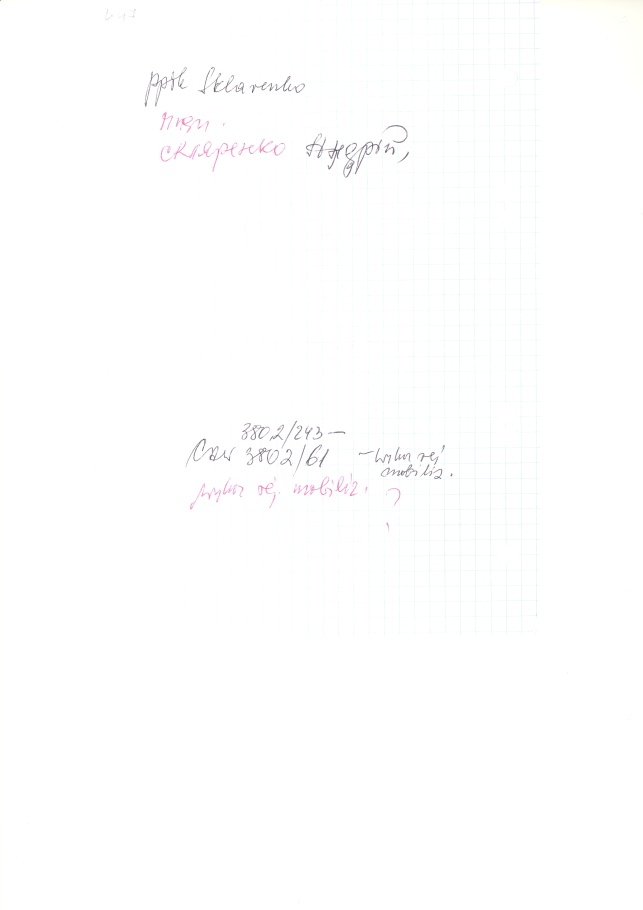 ppłk Sklarenko
скляренко Андрій,
3802/243 –
CAW 3802/61 – wykor rej
mobiliz.
wykor rej. mobiliz. ?